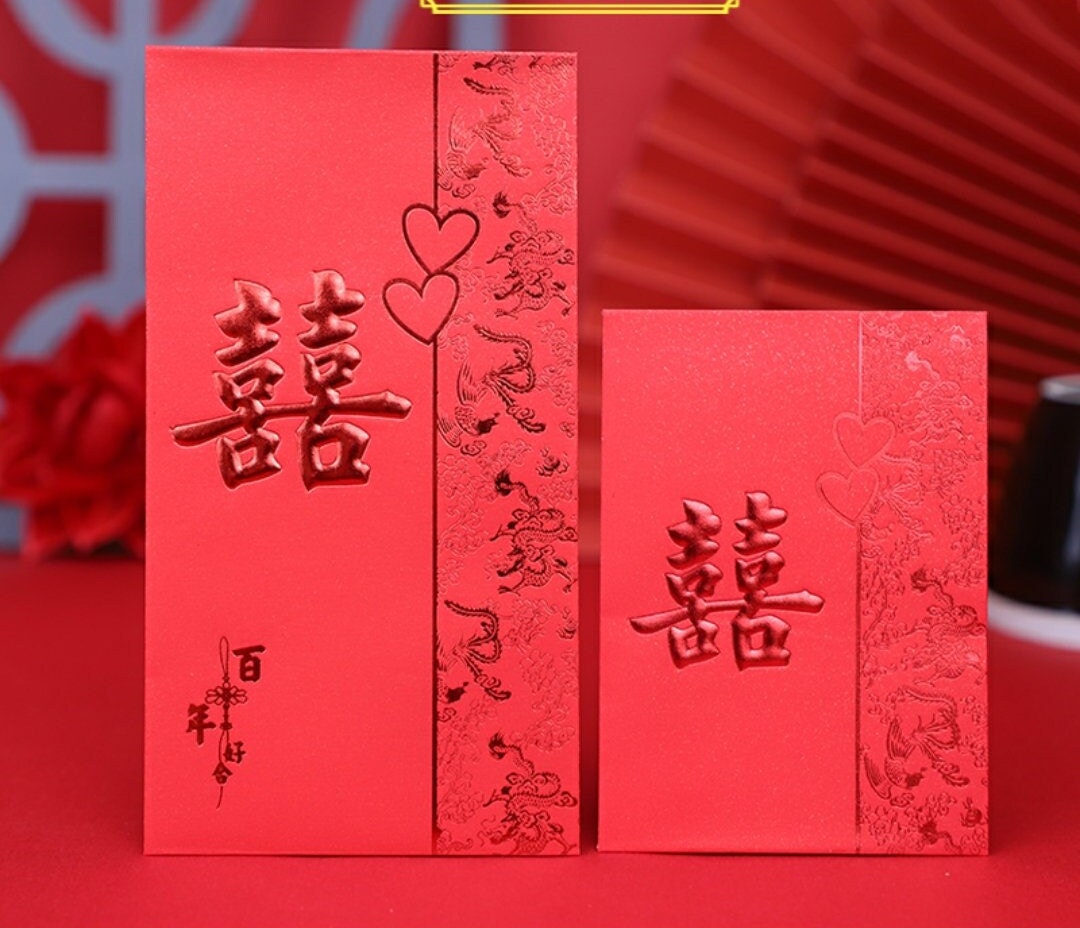 囍
百年好合
囍